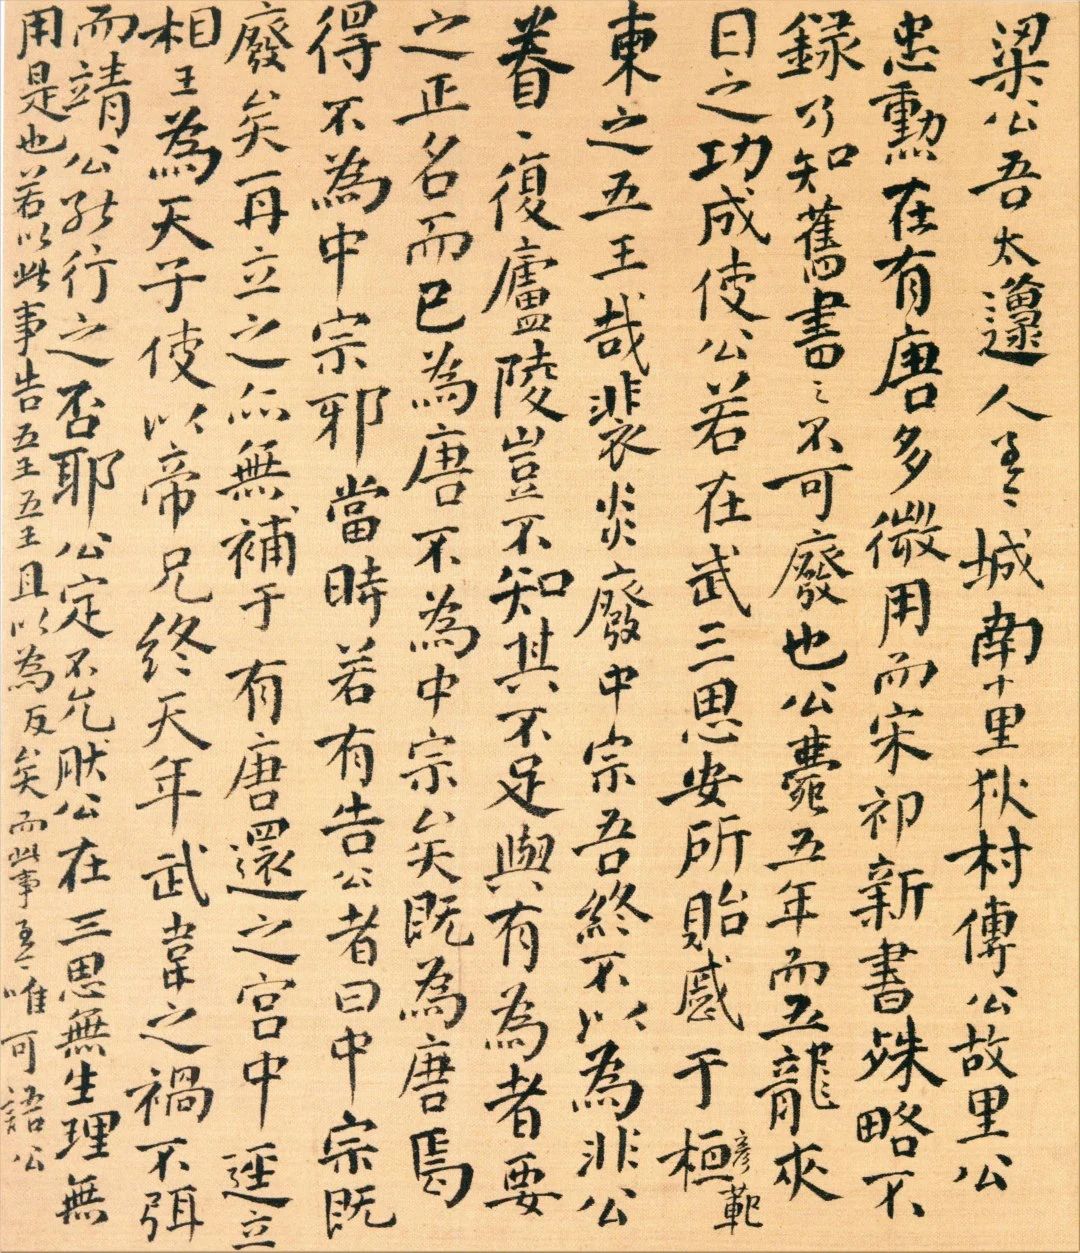 梁公吾太邍人吾〻城南十里狄村傳公故里公
忠勳在有唐多微用而宋祁新書殊略不
録乃知舊書〻不可廢也公薨五年而五龍夾
日之功成使公若在武三思安所貽慼于桓彥範
柬之五王哉裴炎廢中宗吾終不以為非公
眷〻復廬陵豈不知其不足與有為者要
之正名而已為唐不為中宗矣既為唐焉
得不為中宗邪當時若有告公者曰中宗既
廢矣再立之而無補于有唐還之宮中逕立
相王為天子使以帝兄終天年武韋之禍不弭
而靖公能行之否耶公定不允肰公在三思無生理無
用是也若以此事告五王五王且以為反矣而此事唯可語公